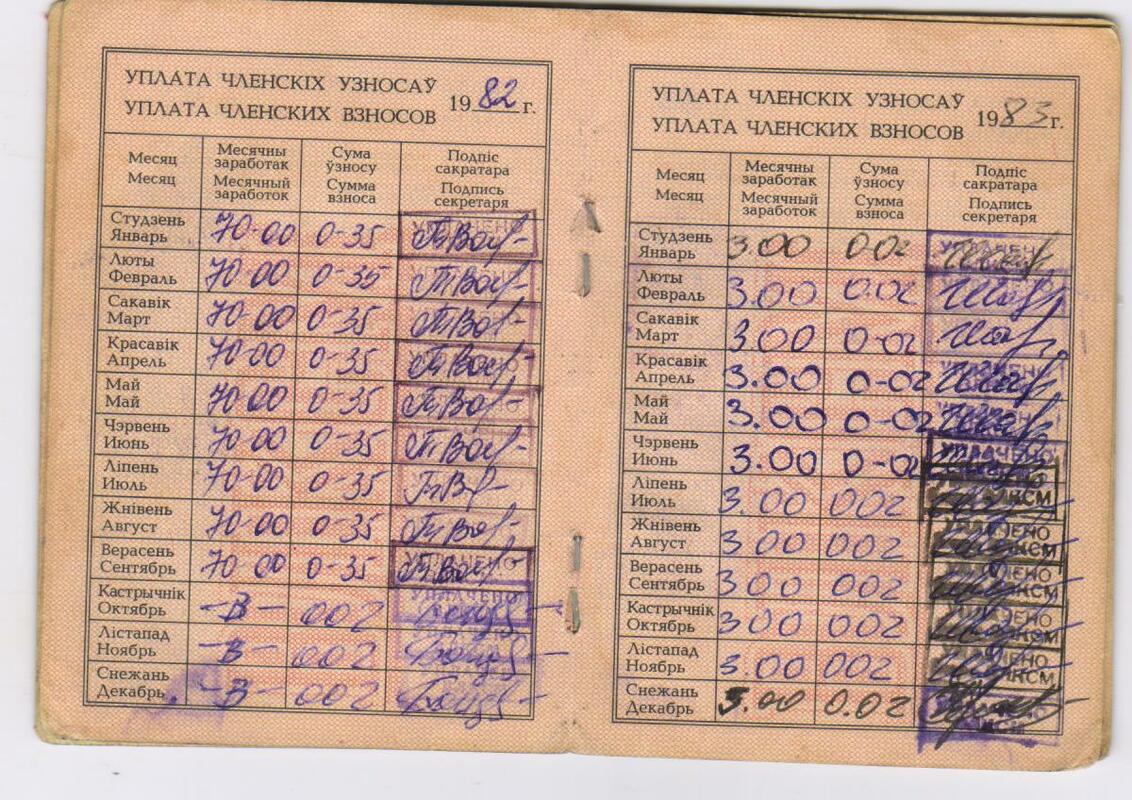 УПЛАТА ЧЛЕНСКІХ УЗНОСАЎ
УПЛАТА ЧЛЕНСКИХ ВЗНОСОВ
1982 г.
Месяц
Месяц
Месячны заработак
Месячный заработок
Сума ўзносу
Сумма взноса
Подпіс сакратара
Подпись секретаря
Студзень
Январь 70-00 0-35
Люты
Февраль 70-00 0-35
Сакавік
Март 70-00 0-35
Красавік
Апрель 70-00 0-35
Май
Май 70-00 0-35
Чэрвень
Июнь 70-00 0-35
Ліпень
Июль 70-00 0-35
Жнівень
Август 70-00 0-35
Верасень
Сентябрь 70-00 0-35
Кастрычнік
Октябрь -В- 002 УПЛАЧЕНО
Лістапад
Ноябрь -В- 002
Снежань
Декабрь -В- 002
УПЛАТА ЧЛЕНСКІХ УЗНОСАЎ
УПЛАТА ЧЛЕНСКИХ ВЗНОСОВ
1983 г.
Месяц
Месяц
Месячны заработак
Месячный заработок
Сума ўзносу
Сумма взноса
Подпіс сакратара
Подпись секретаря
Студзень
Январь 3.00 0.02 УПЛАЧЕНО
Люты
Февраль 3.00 0.02
Сакавік
Март 3.00 0-02
Красавік
Апрель 3.00 0-02 УПЛАЧЕНО
Май
Май 3.00 0-02
Чэрвень
Июнь 3.00 0-02 УПЛАЧЕНО
Ліпень
Июль 3.00 002
Жнівень
Август 3.00 002 УПЛАЧЕНО
Верасень
Сентябрь 3.00 002
Кастрычнік
Октябрь 3.00 002
Лістапад
Ноябрь 3.00 002
Снежань
Декабрь 3.00 0.02